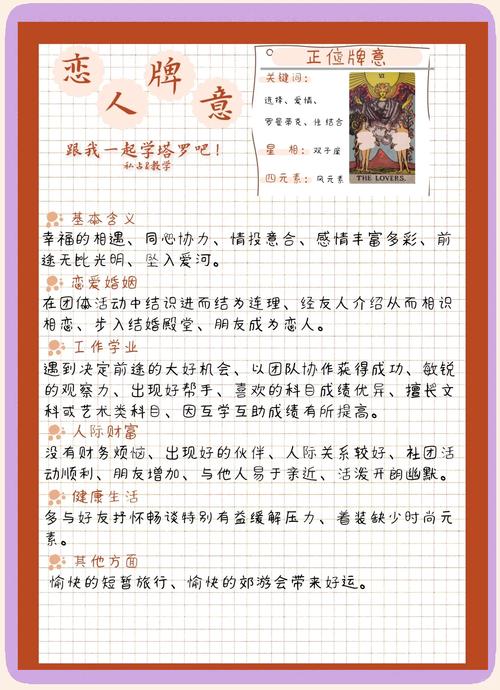 恋人牌意
跟我一起学塔罗吧！
私占&教学
正位牌意
关键词：
选择、爱情、
罗曼蒂克、性结合
星 相：双子座
四元素：风元素
VI
THE LOVERS.
基本含义
幸福的相遇、同心协力、情投意合、感情丰富多彩、前
途无比光明、坠入爱河。
恋爱婚姻
在团体活动中结识进而结为连理、经友人介绍从而相识
相恋、步入结婚殿堂、朋友成为恋人。
工作学业
遇到决定前途的大好机会、以团队协作获得成功、敏锐
的观察力、出现好帮手、喜欢的科目成绩优异、擅长文
科或艺术类科目、因互学互助成绩有所提高。
人际财富
没有财务烦恼、出现好的伙伴、人际关系较好、社团活
动顺利、朋友增加、与他人易于亲近、活泼开朗幽默。
健康生活
多与好友抒怀畅谈特别有益缓解压力、着装缺少时尚元
素。
其他方面
愉快的短暂旅行、愉快的郊游会带来好运。